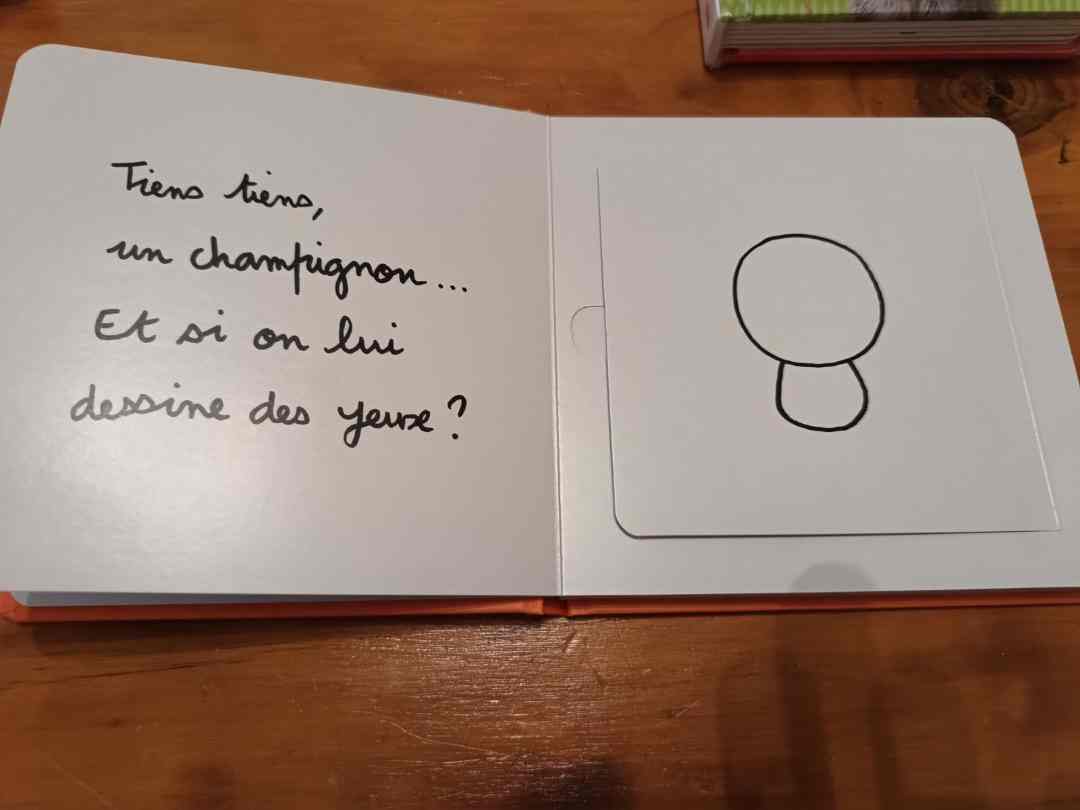 Tiens tiens,
un champignon...
Et si on lui
dessine des yeux ?